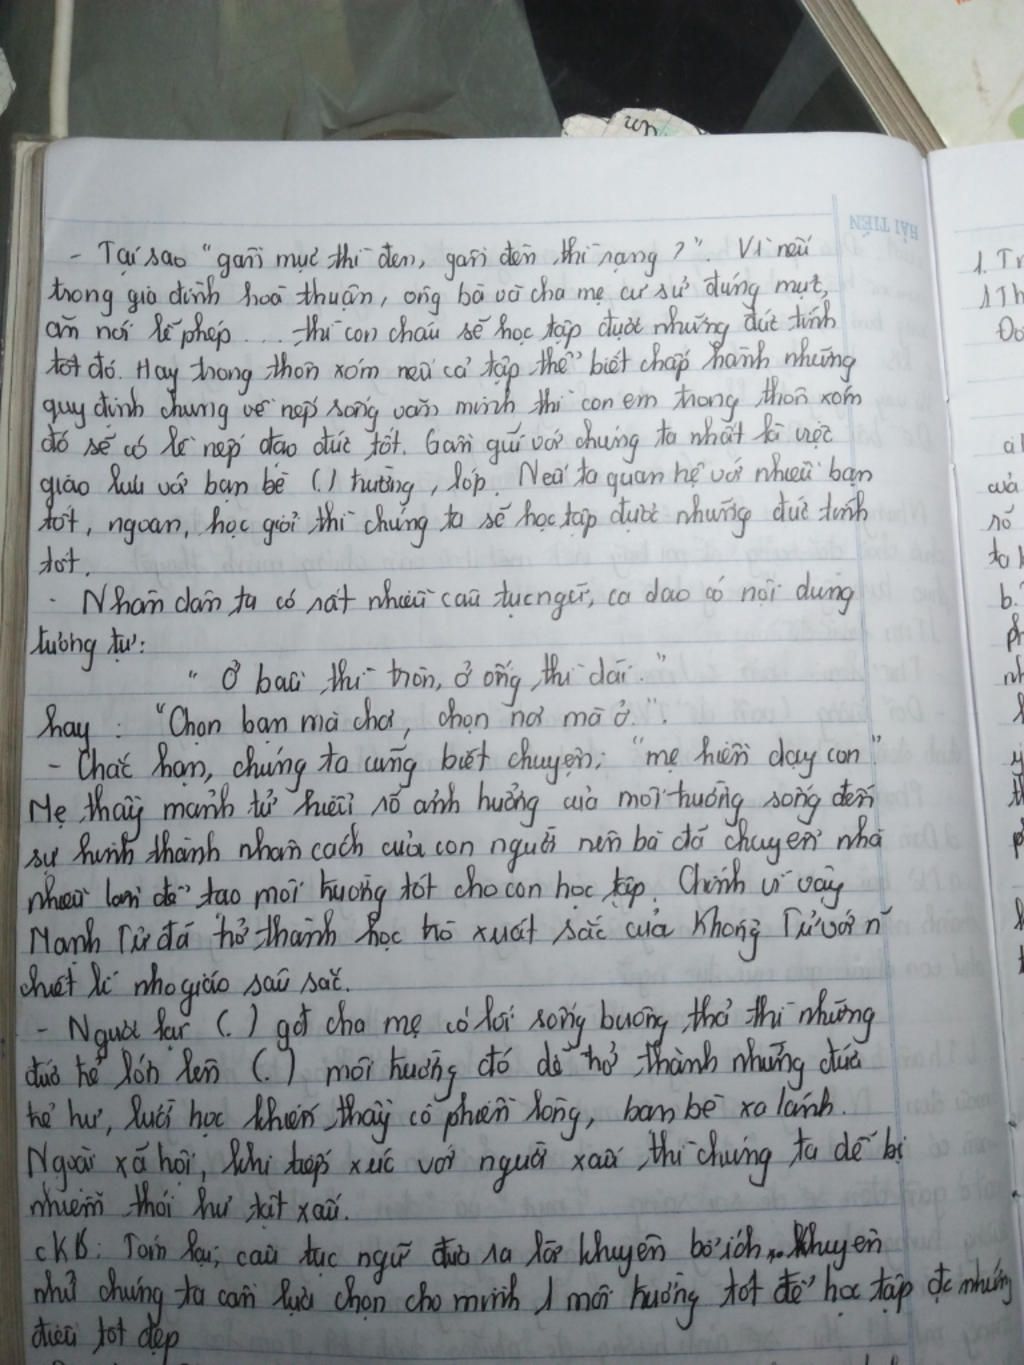 HẢI TIẾN
- Tại sao "gần mực thì đen, gần đèn thì rạng?". Vì nếu
trong gia đình hoà thuận, ông bà và cha mẹ cư sử đúng mực,
ăn nói lễ phép.... thì con cháu sẽ học tập được những đức tính
tốt đó. Hay trong thôn xóm nếu cả tập thể biết chấp hành những
quy định chung về nếp sống văn minh thì con em trong thôn xóm
đó sẽ có lề nếp đạo đức tốt. Gần gũi với chúng ta nhất là việc
giao lưu với bạn bè (.) trường, lớp. Nếu ta quan hệ với nhiều bạn
tốt, ngoan, học giỏi thì chúng ta sẽ học tập được những đức tính
tốt.
- Nhân dân ta có rất nhiều câu tục ngữ, ca dao có nội dung
tương tự:
"Ở bầu thì tròn, ở ống thì dài."
hay: "Chọn bạn mà chơi, chọn nơi mà ở.".
- Chắc hạn, chúng ta cũng biết chuyện: "mẹ hiền dạy con".
Mẹ thầy mạnh tử hiểu số ảnh hưởng của môi trường sống đến
sự hình thành nhân cách của con người nên bà đã chuyển nhà
nhiều lần để tạo môi trường tốt cho con học tập. Chính vì vậy
Mạnh Tử đã trở thành học trò xuất sắc của Khổng Tử với n
chiết lí nho giáo sâu sắc.
- Ngược lại (.) gđ cha mẹ có lối sống buông thả thì những
đứa trẻ lớn lên (.) môi trường đó dễ trở thành những đứa
trẻ hư, lười học khiến thầy cô phiền lòng, bạn bè xa lánh.
Ngoài xã hội, khi tiếp xúc với người xấu thì chúng ta dễ bị
nhiễm thói hư tật xấu.
cKB: Tóm lại, câu tục ngữ đưa ra lời khuyên bổ ích, khuyên
nhủ chúng ta cần lựa chọn cho mình 1 môi trường tốt để học tập đc những
điều tốt đẹp